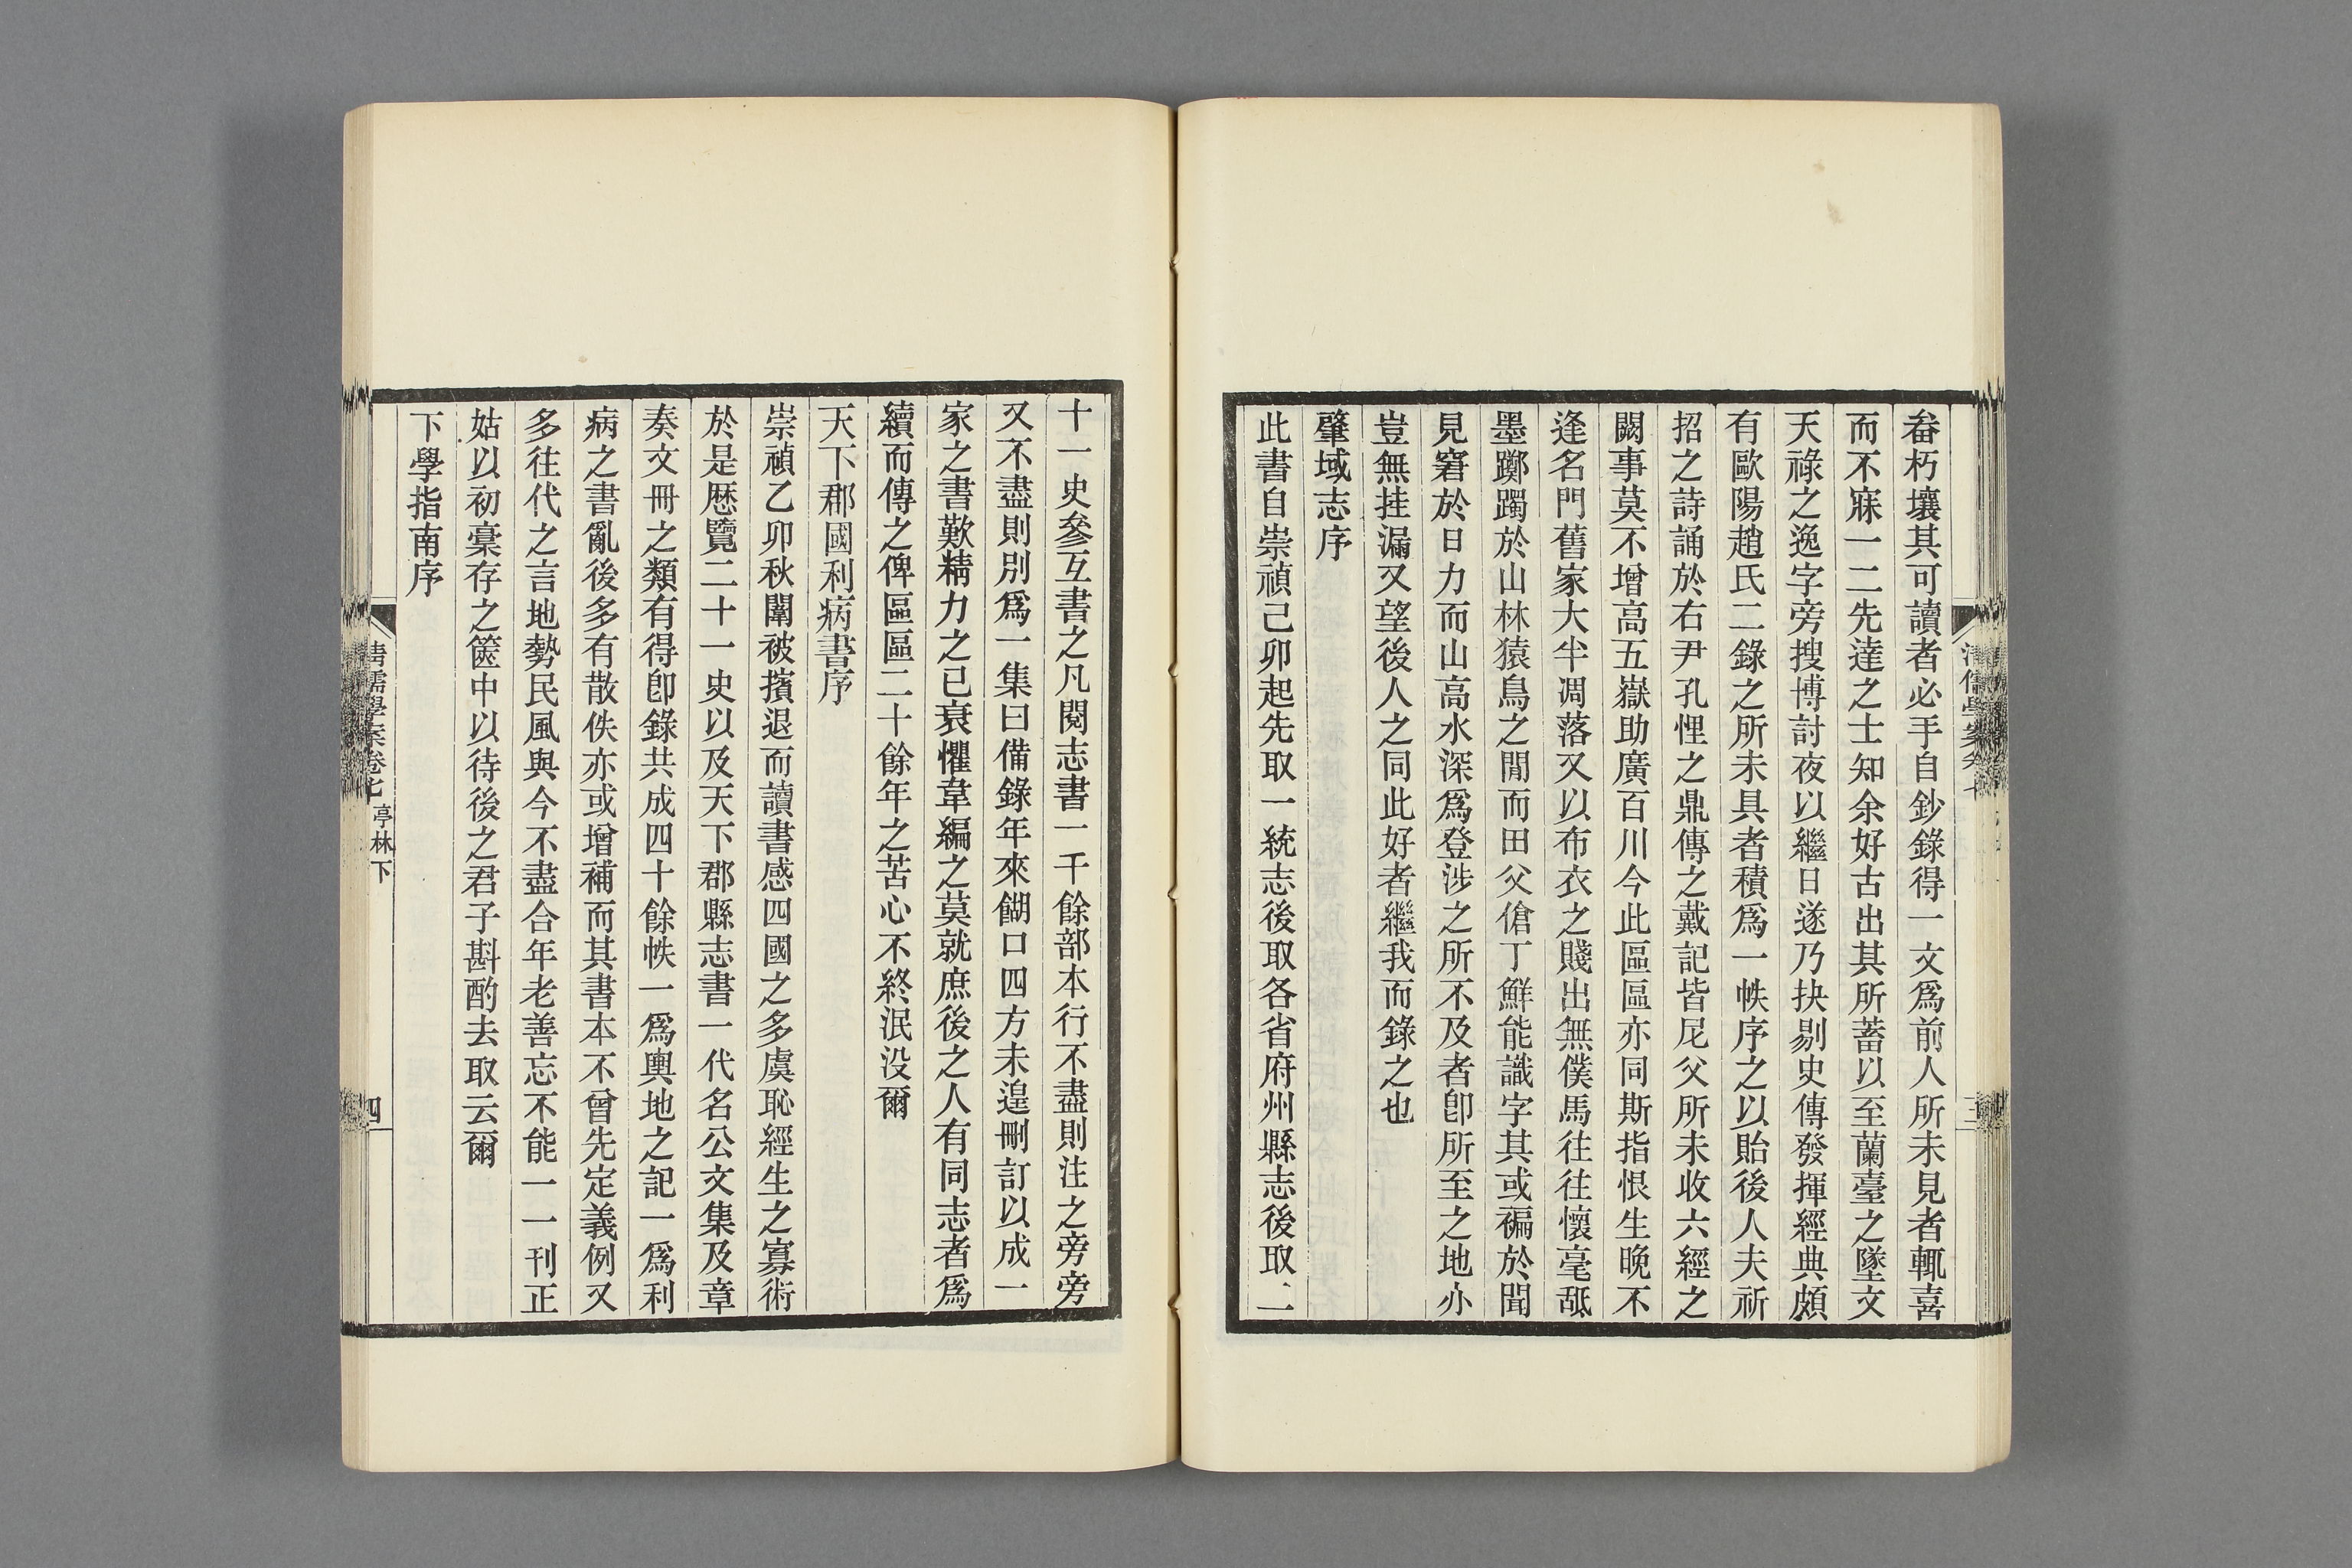 畚朽壤其可讀者必手自鈔錄得一文爲前人所未見者輒喜
而不寐一二先達之士知余好古出其所蓄以至蘭臺之墜文
天祿之逸字旁搜博討夜以繼日遂乃抉剔史傳發揮經典頗
有歐陽趙氏二錄之所未具者積爲一帙序之以貽後人夫祈
招之詩誦於右尹孔悝之鼎傳之戴記皆尼父所未收六經之
闕事莫不增高五嶽助廣百川今此區區亦同斯指恨生晚不
逢名門舊家大半凋落又以布衣之賤出無僕馬往往懷毫舐
墨躑躅於山林猿鳥之閒而田父傖丁鮮能識字其或褊於聞
見窘於日力而山高水深爲登涉之所不及者卽所至之地亦
豈無挂漏又望後人之同此好者繼我而錄之也
肇域志序
此書自崇禎己卯起先取一統志後取各省府州縣志後取二
十一史參互書之凡閱志書一千餘部本行不盡則注之旁旁
又不盡則別爲一集曰備錄年來餬口四方未遑刪訂以成一
家之書歎精力之已衰懼韋編之莫就庶後之人有同志者爲
續而傳之俾區區二十餘年之苦心不終泯没爾
天下郡國利病書序
崇禎乙卯秋闈被擯退而讀書感四國之多虞恥經生之寡術
於是厯覽二十一史以及天下郡縣志書一代名公文集及章
奏文冊之類有得卽錄共成四十餘帙一爲輿地之記一爲利
病之書亂後多有散佚亦或增補而其書本不曾先定義例又
多往代之言地勢民風與今不盡合年老善忘不能一一刊正
姑以初稾存之篋中以待後之君子斟酌去取云爾
下學指南序
清儒學案卷七 亭林下
四